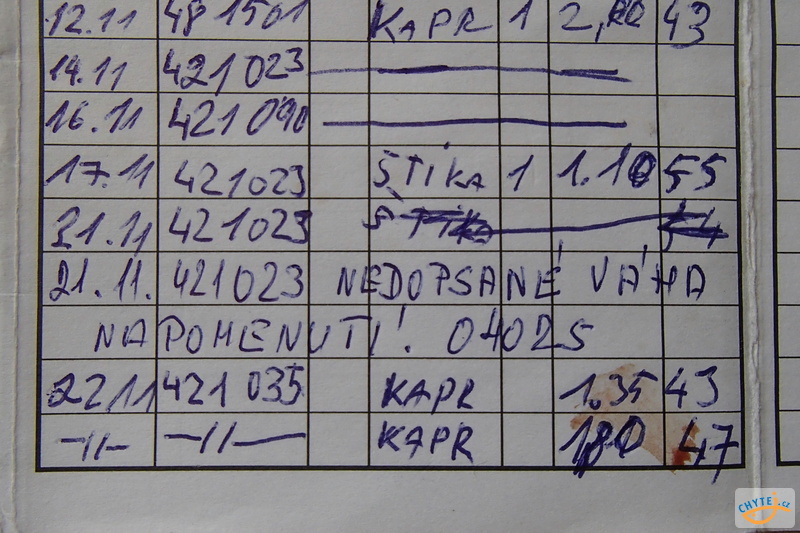 12.11 481501 KAPR 1 2, 43
14.11 421023
16.11 421090
17.11 421023 ŠTIKA 1 1.10 55
21.11 421023
21.11. 421023 NEDOPSANÉ VÁHA
NAPOMENUTÍ! 04025
22 11 421 035 KAPR 1.35 43
–//– –//– KAPR 1,80 47
CHYTEJ.cz